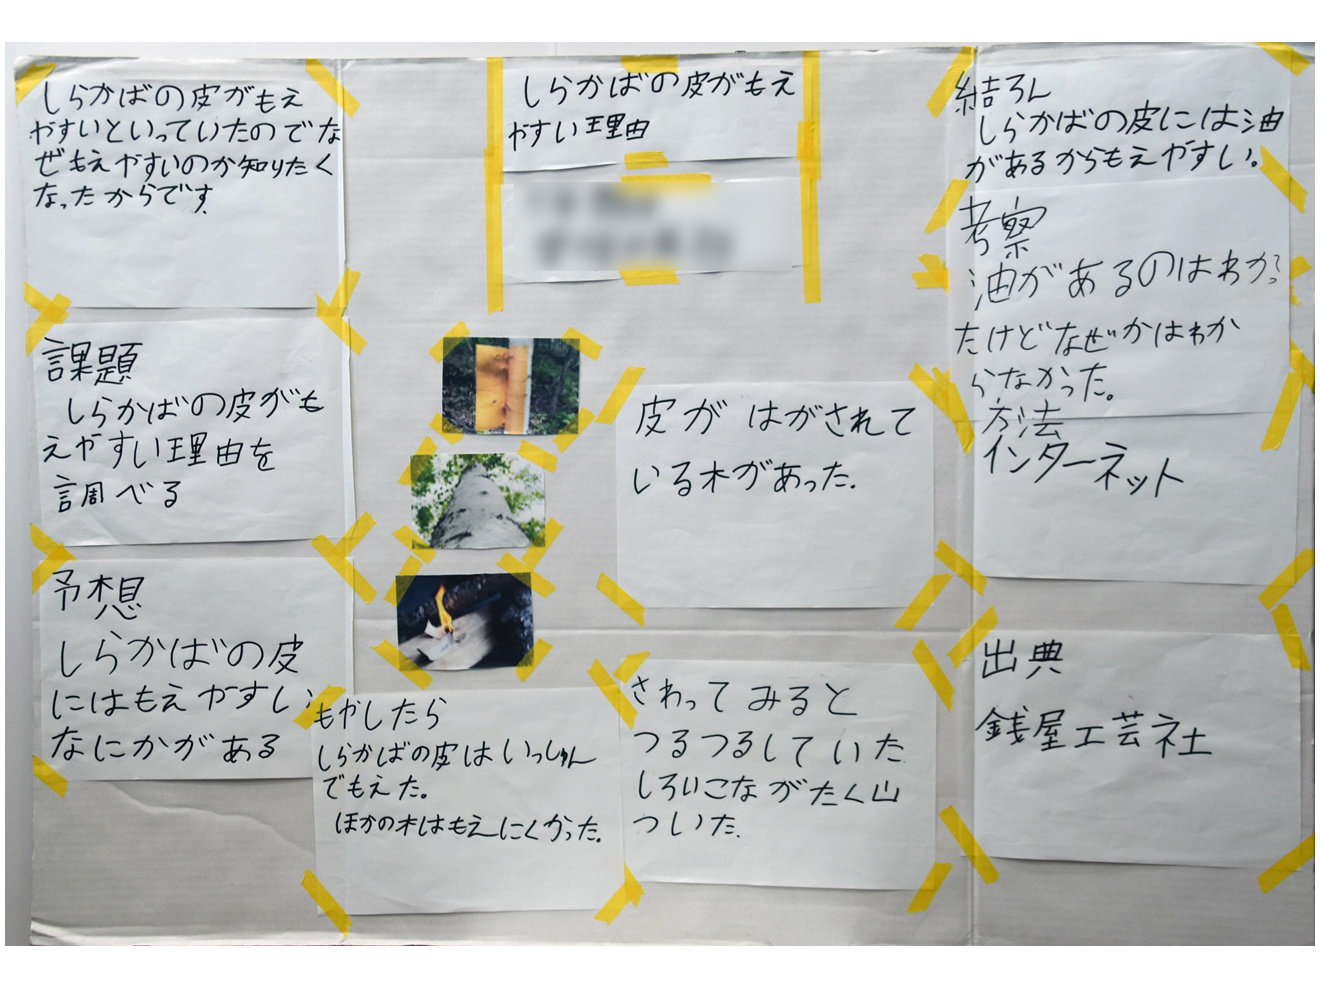 しらかばの皮がもえ
やすい理由
しらかばの皮がもえ
やすいといっていたのでな
ぜもえやすいのか知りたく
なったからです
課題
しらかばの皮がも
えやすい理由を
調べる
予想
しらかばの皮
にはもえやすい
なにかがある
もやしたら
しらかばの皮はいっしゅん
でもえた。
ほかの木はもえにくかった。
皮がはがされて
いる木があった.
さわってみると
つるつるしていた
しろいこながたく山
ついた.
結ろん
しらかばの皮には油
があるからもえやすい。
考察
油があるのはわかっ
たけどなぜかはわか
らなかった。
方法
インターネット
出典
銭屋工芸社